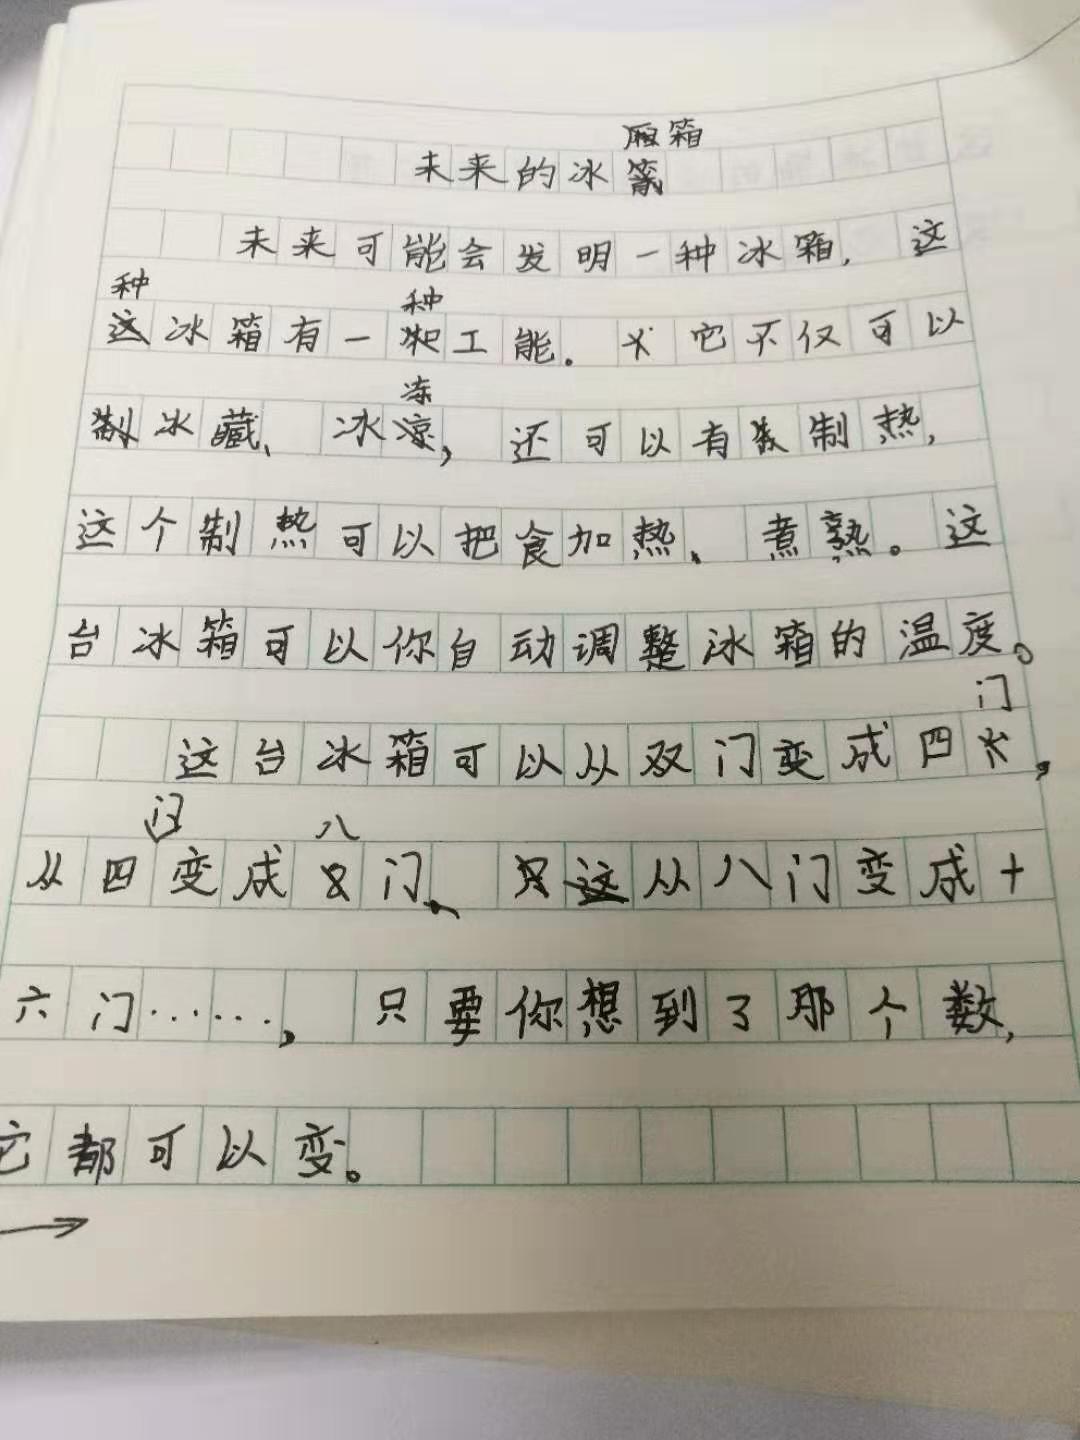 厢箱
未来的冰
未来可能会发明一种冰箱，这
种 种
冰箱有一工能。它不仅可以
冻
冰藏、冰，还可以有制热，
这个制热可以把食加热、煮熟。这
台冰箱可以你自动调整冰箱的温度。
门
这台冰箱可以从双门变成四，
门 八
从四变成门、从八门变成十
六门……，只要你想到了那个数，
它都可以变。
→